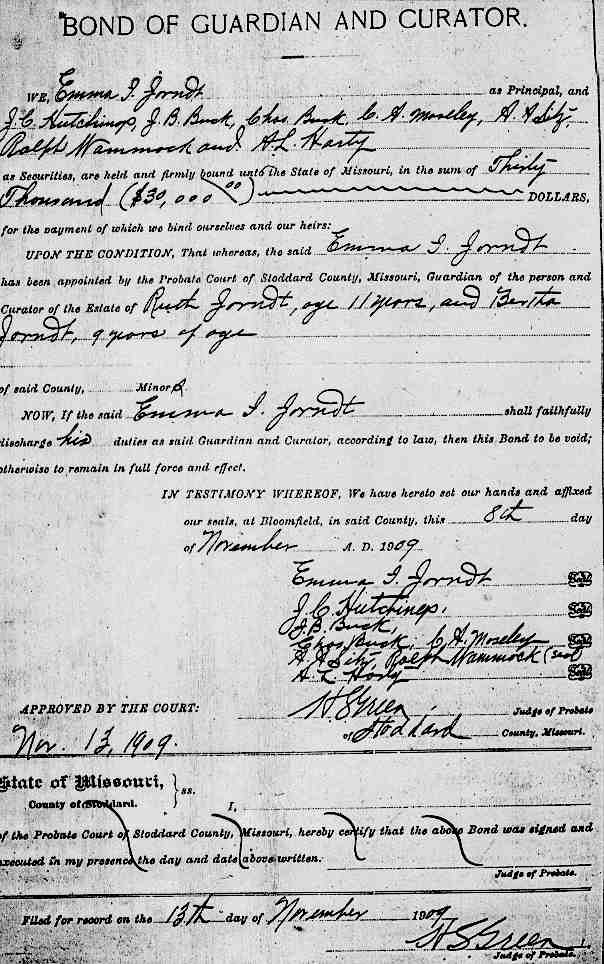 BOND OF GUARDIAN AND CURATOR.
WE, Emma I. Jorndt as Principal, and
J. C. Hutchings, J. B. Buck, Chas. Buck, C. A. Moseley, A. A. Sitz,
Ralph Wammock and A. L. Harty
as Securities, are held and firmly bound unto the State of Missouri, in the sum of Thirty
Thousand ($30,000 00) DOLLARS,
for the payment of which we bind ourselves and our heirs:
UPON THE CONDITION, That whereas, the said Emma I. Jorndt
has been appointed by the Probate Court of Stoddard County, Missouri, Guardian of the person and
Curator of the Estate of Ruth Jorndt, age 11 years, and Bertha
Jorndt, 9 years of age
of said County, Minors
NOW, If the said Emma I. Jorndt shall faithfully
discharge his duties as said Guardian and Curator, according to law, then this Bond to be void;
otherwise to remain in full force and effect.
IN TESTIMONY WHEREOF, We have hereto set our hands and affixed
our seals, at Bloomfield, in said County, this 8th day
of November A. D. 1909
Emma I. Jorndt Seal
J. C. Hutchings, Seal
J. B. Buck,
Chas. Buck, C. A. Moseley Seal
A. A. Sitz, Ralph Wammock (seal
A. L. Harty Seal
APPROVED BY THE COURT: H S Green Judge of Probate
Nov. 13, 1909. of Stoddard County, Missouri.
State of Missouri,
County of Stoddard. } ss. I,
of the Probate Court of Stoddard County, Missouri, hereby certify that the above Bond was signed and
executed in my presence the day and date above written.
Judge of Probate.
Filed for record on the 13th day of November 1909
H S Green
Judge of Probate.